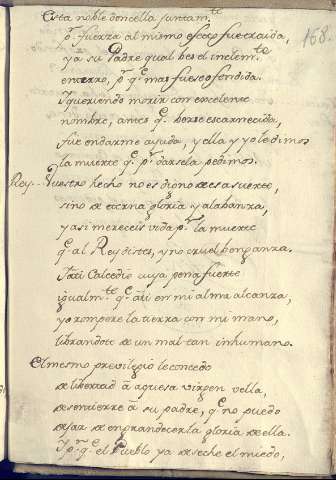 158.
Esta noble doncella juntam.te
p.r fuerza al mismo efecto fue traida,
ya su Padre qual bes el inclem.te
enterro, p.r q.e mas fuese ofendida.
Y queriendo morir con excelente
nombre, antes q.e berse escarnecida,
fue en darme ayuda, y ella y yo le dimos
la muerte q.e p.r darsela pedimos.
Rey.. Vuestro hecho no es digno de esa suerte,
sino de eterna gloria y alabanza,
y asi mereceis vida p.r la muerte
q.e al Rey distes, y no cruel benganza.
Y a ti Calcedio cuya pena fuerte
igualm.te q.e a ti en mi alma alcanza,
yo rompere la tierra con mi mano,
librandote de un mal tan inhumano.
El mesmo previlegio le concedo
de libertad â aquesa virgen vella,
desentierre â su padre, q.e no puedo
dejar de engrandecer la gloria de ella.
Y p.r q.e el Pueblo ya deseche el miedo,